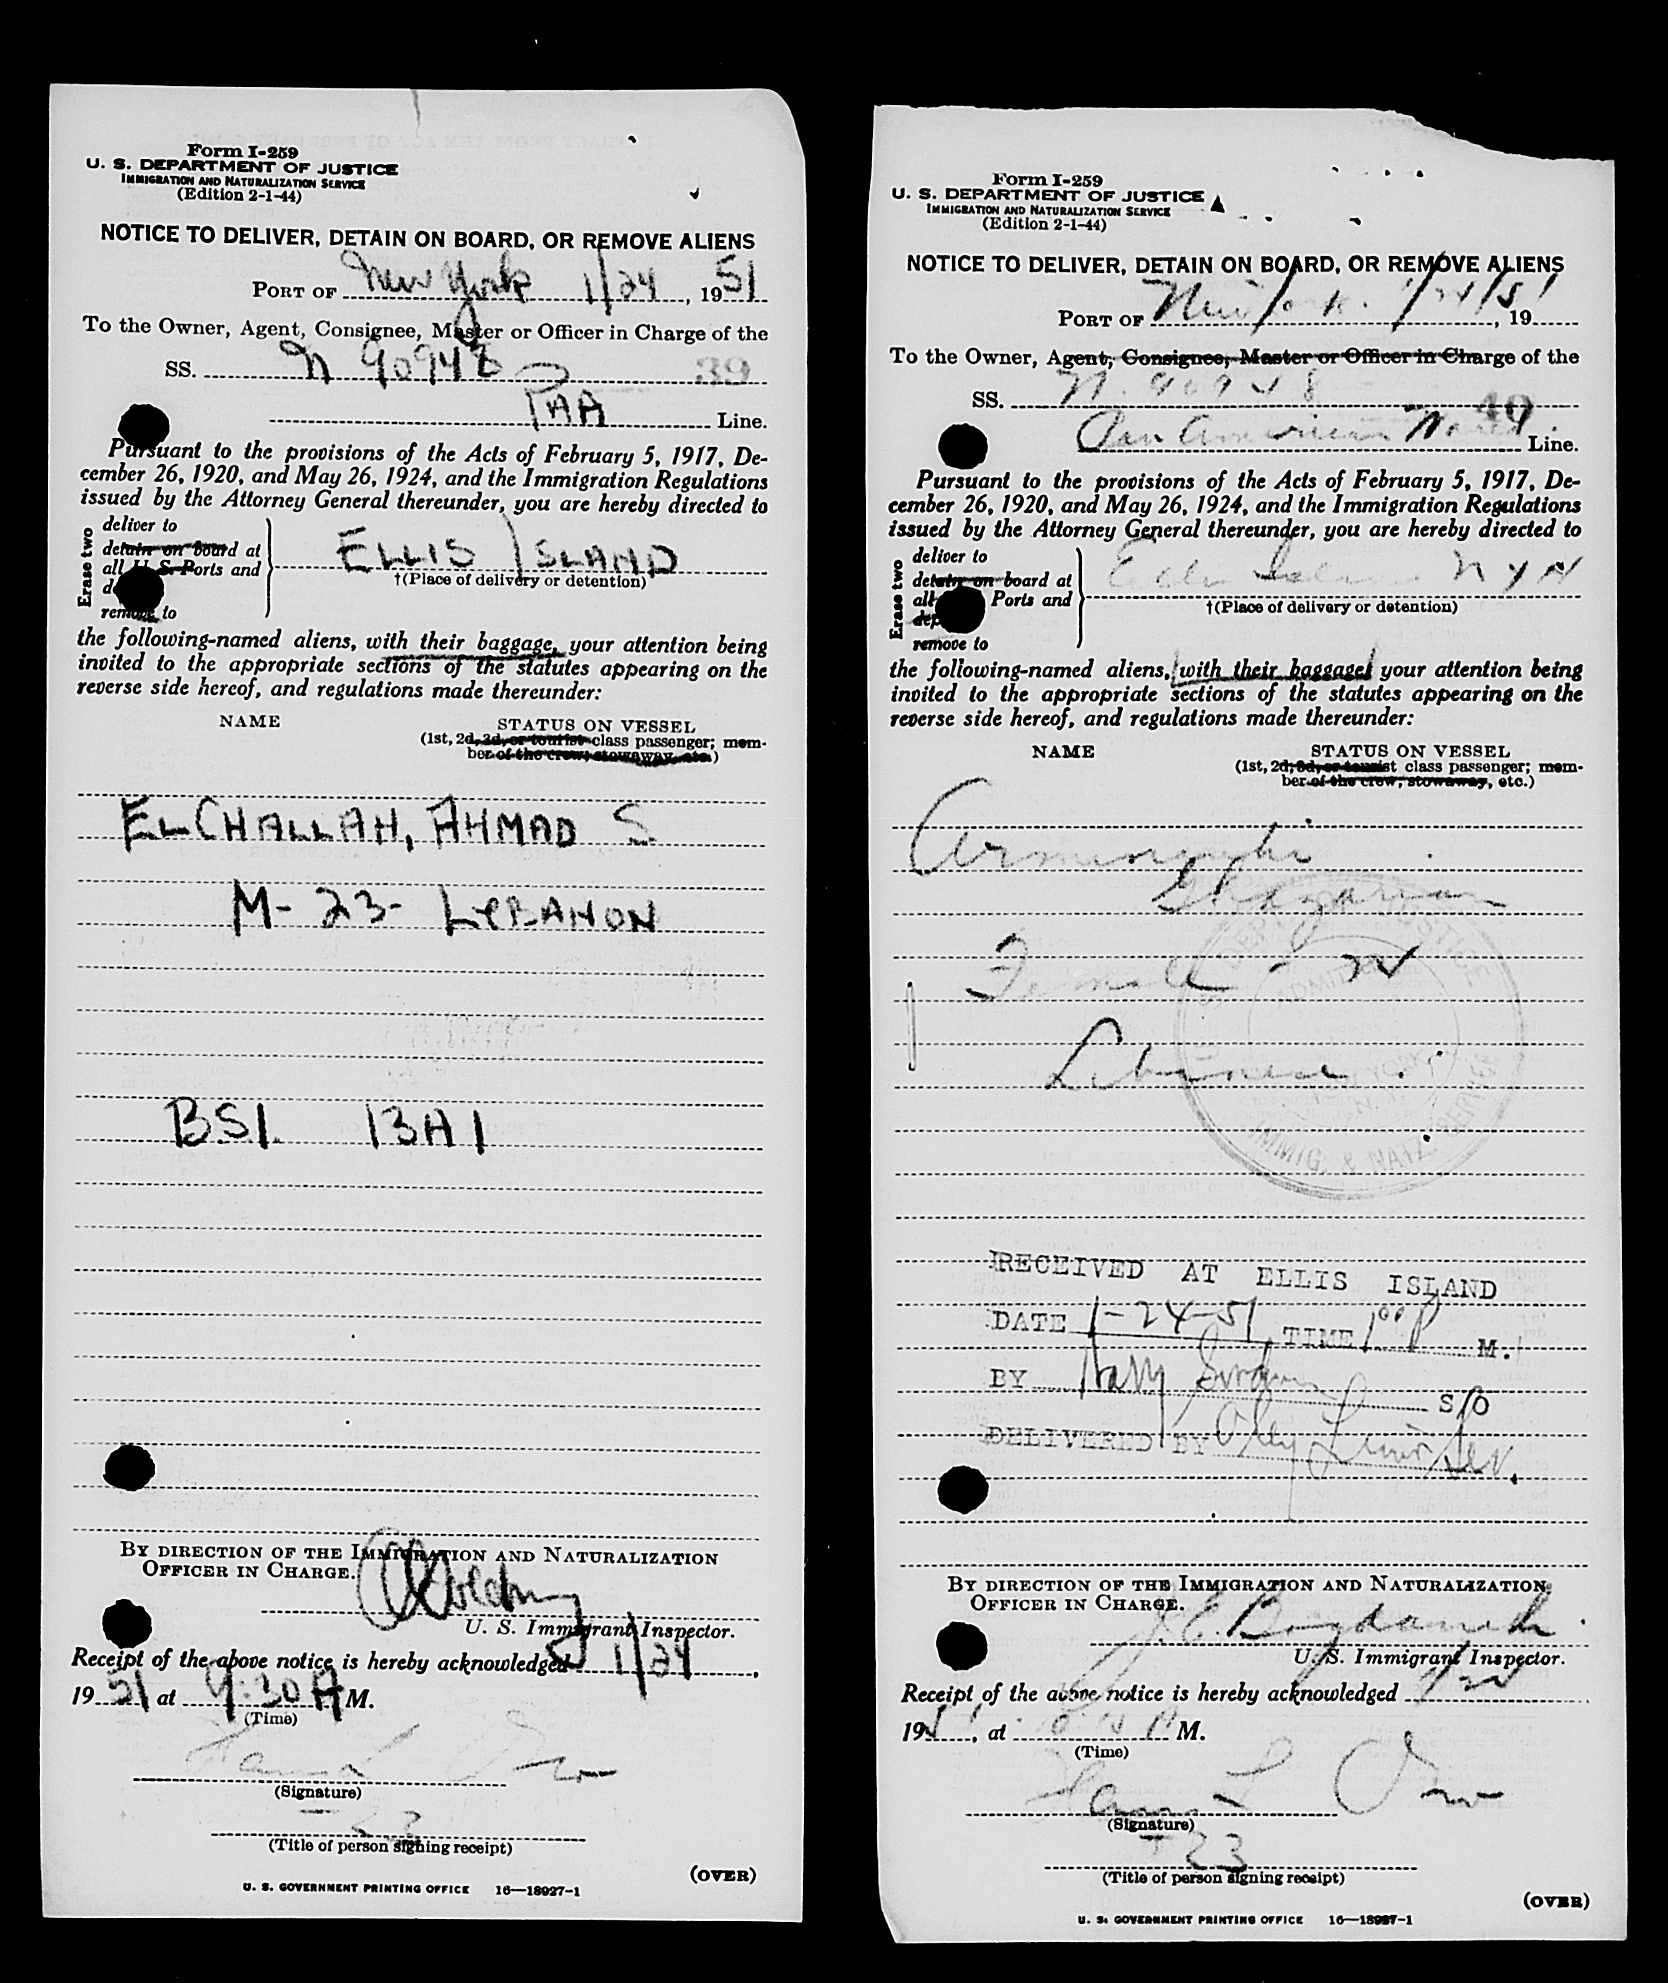 Form I-259
U. S. DEPARTMENT OF JUSTICE
IMMIGRATION AND NATURALIZATION SERVICE
(Edition 2-1-44)
NOTICE TO DELIVER, DETAIN ON BOARD, OR REMOVE ALIENS
PORT OF New York 1/24, 1951
To the Owner, Agent, Consignee, Master or Officer in Charge of the
SS. N 90948 39
PAA Line.
Pursuant to the provisions of the Acts of February 5, 1917, De-
cember 26, 1920, and May 26, 1924, and the Immigration Regulations
issued by the Attorney General thereunder, you are hereby directed to
Erase two
deliver to
detain on board at
all U. S. Ports and
remove to
ELLIS ISLAND
†(Place of delivery or detention)
the following-named aliens, with their baggage, your attention being
invited to the appropriate sections of the statutes appearing on the
reverse side hereof, and regulations made thereunder:
NAME STATUS ON VESSEL
(1st, 2d, 3d, or tourist class passenger; mem-
ber of the crew, stowaway, etc.)
ELCHALLAH, AHMAD S
M- 23- LEBANON
B.S.I. 13A1
BY DIRECTION OF THE IMMIGRATION AND NATURALIZATION
OFFICER IN CHARGE.
U. S. Immigrant Inspector.
Receipt of the above notice is hereby acknowledged 1/24,
1951 at 9:30 A M.
(Time)
(Signature)
23
(Title of person signing receipt)
(OVER)
U. S. GOVERNMENT PRINTING OFFICE 16—18927-1
Form I-259
U. S. DEPARTMENT OF JUSTICE
IMMIGRATION AND NATURALIZATION SERVICE
(Edition 2-1-44)
NOTICE TO DELIVER, DETAIN ON BOARD, OR REMOVE ALIENS
PORT OF New York. 1/24/51, 19
To the Owner, Agent, Consignee, Master or Officer in Charge of the
SS. N. 90948 40
Pan American World Line.
Pursuant to the provisions of the Acts of February 5, 1917, De-
cember 26, 1920, and May 26, 1924, and the Immigration Regulations
issued by the Attorney General thereunder, you are hereby directed to
Erase two
deliver to
detain on board at
all Ports and
dep
remove to
Ellis Island NYH
†(Place of delivery or detention)
the following-named aliens, with their baggage, your attention being
invited to the appropriate sections of the statutes appearing on the
reverse side hereof, and regulations made thereunder:
NAME STATUS ON VESSEL
(1st, 2d, 3d, or tourist class passenger; mem-
ber of the crew, stowaway, etc.)
Female -
Lebanese
IMMIG. & NATZ. SERVICE
RECEIVED AT ELLIS ISLAND
DATE 1-24-51 TIME 1 00 P M.
BY Harry S/O
DELIVERED BY
BY DIRECTION OF THE IMMIGRATION AND NATURALIZATION
OFFICER IN CHARGE.
U. S. Immigrant Inspector.
Receipt of the above notice is hereby acknowledged 1/24
1951, at M.
(Time)
(Signature)
23
(Title of person signing receipt)
(OVER)
U. S. GOVERNMENT PRINTING OFFICE 16—18927-1